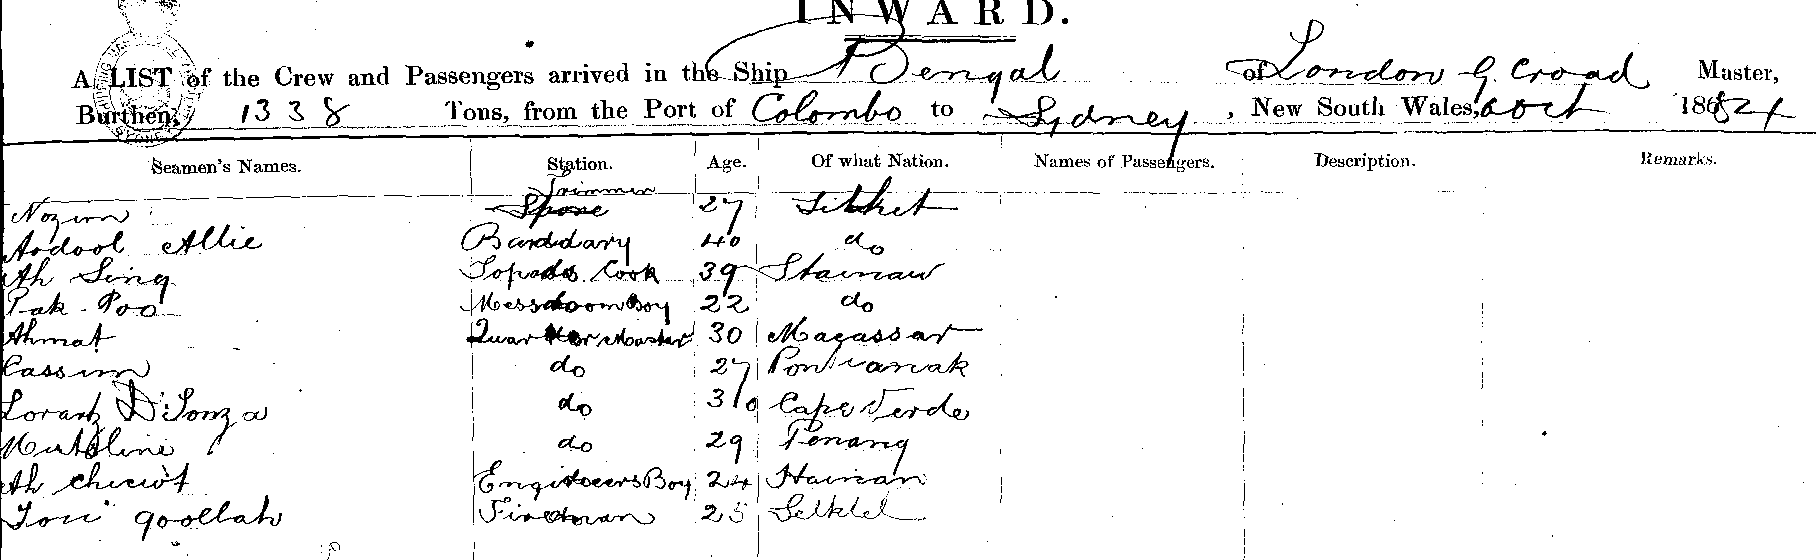 INWARD.
A LIST of the Crew and Passengers arrived in the Ship Bengal of London G. Croad Master,
Burthen, 1338 Tons, from the Port of Colombo to Sydney, New South Wales, Oct 1884
Seamen's Names. Station. Age. Of what Nation. Names of Passengers. Description. Remarks.
Trimmer
Nozim 27 Silket
Aodool Allie 40 do
Ah Sing Cook 39
Pak Poo Messroom Boy 22 do
Ahmat Quarter Master 30 Macassar
Cassim do 27 Pontianak
Lorantz D'Sonza do 30 Cape Verde
do 29 Penang
Ah Engineers Boy 24 Hainan
goollah Fireman 25